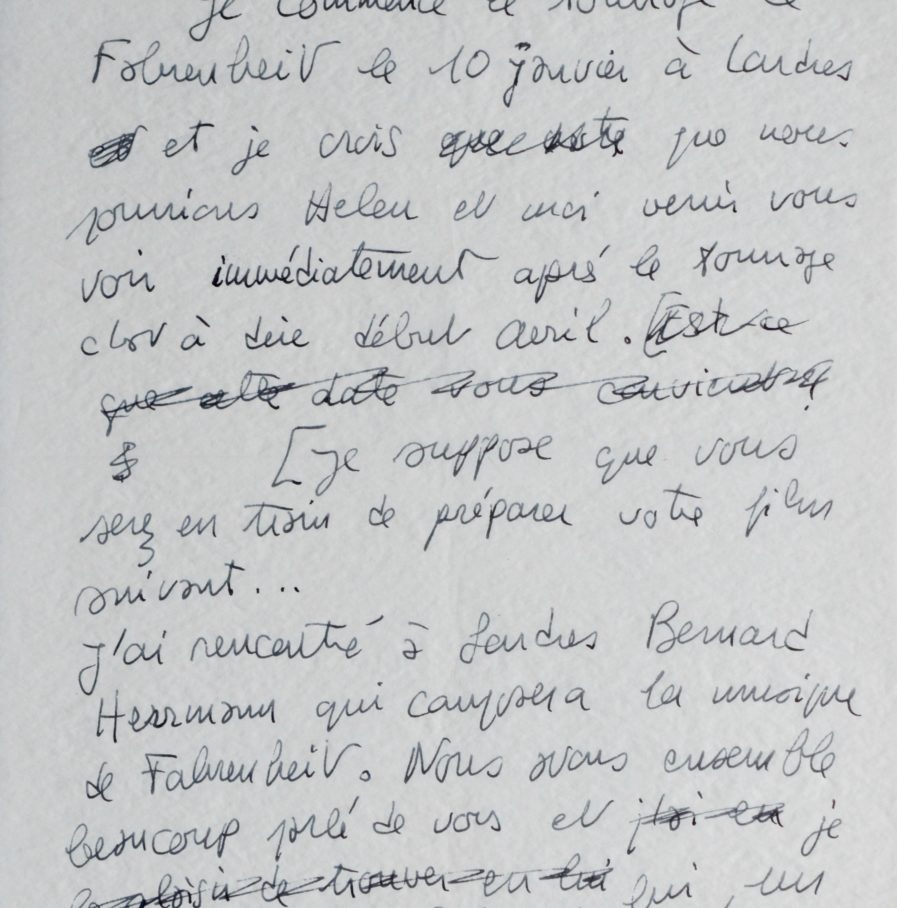 je commence le tournage de
Fahrenheit le 10 janvier à Londres
et je crois que cette que nous
pourrions Helen et moi venir vous
voir immédiatement aprés le tournage
c'est à dire début avril. [Est-ce
que cette date vous conviendrait
[je suppose que vous
serez en train de préparer votre film
suivant...
J'ai rencontré à Londres Bernard
Herrmann qui composera la musique
de Fahrenheit. Nous avons ensemble
beaucoup parlé de vous et j'ai eu je
le plaisir de trouver en lui lui, un